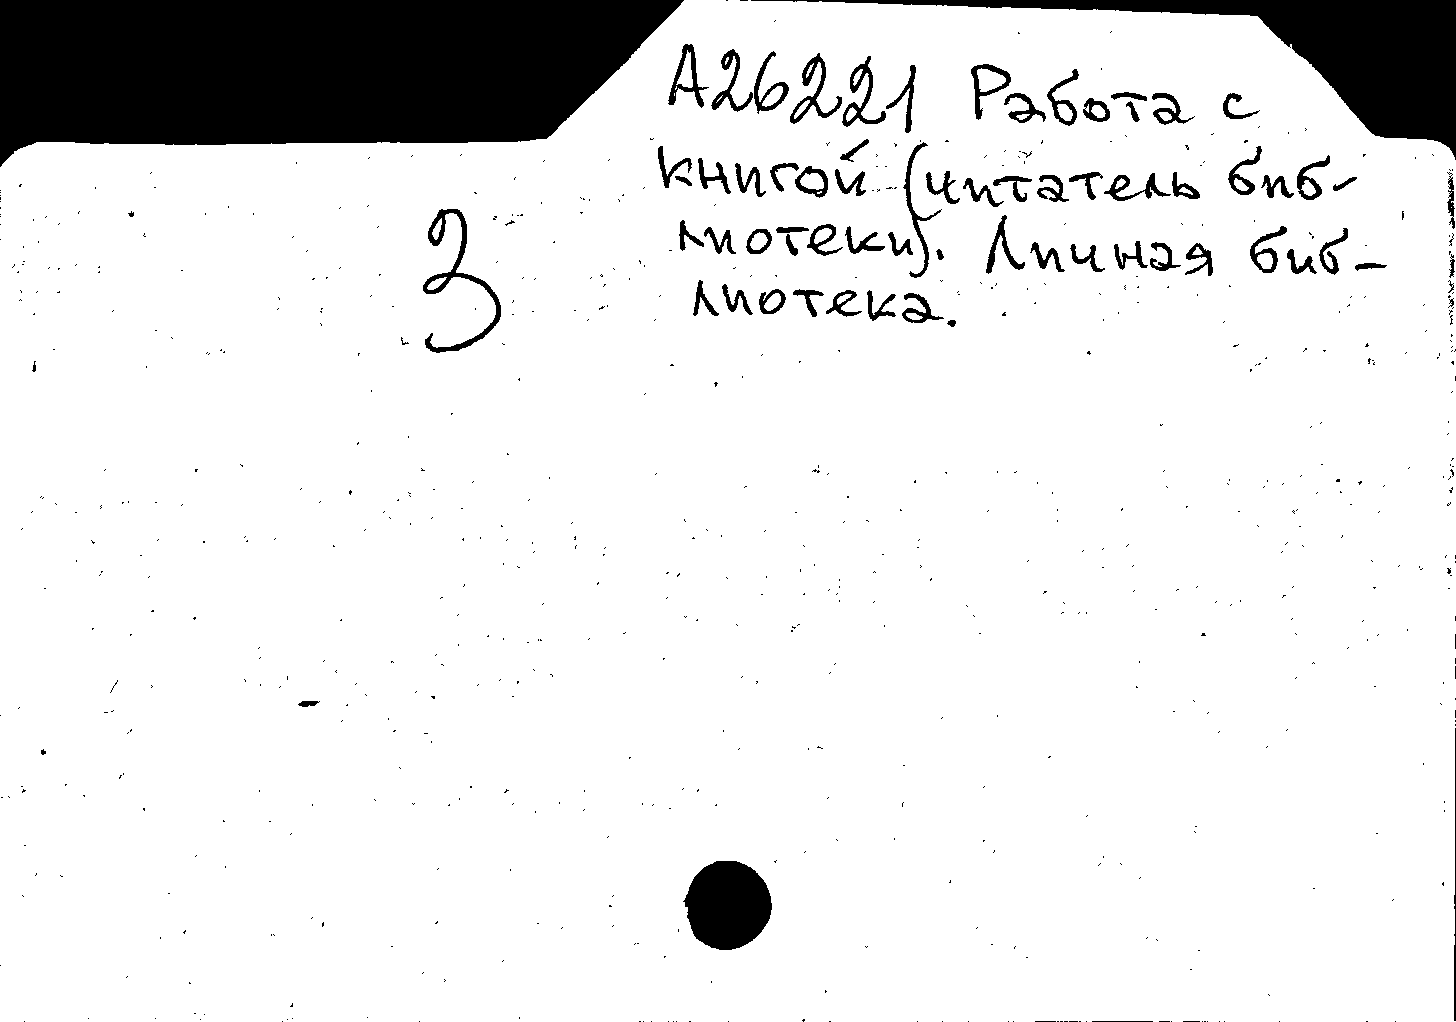 А26221 Работа с
книгой (читатель биб-
лиотеки). Личная биб-
лиотека.
3